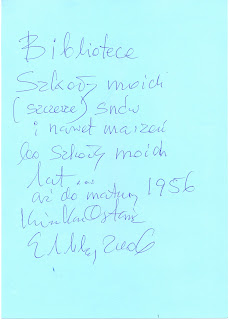 Bibliotece
Szkoły moich
(szczerze) snów
i nawet marzeń
bo Szkoły moich
lat...
aż do matury 1956